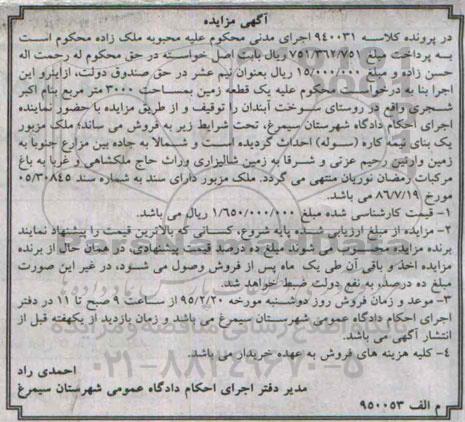 آگهی مزایده
در پرونده کلاسه ۹۴۰۰۳۱ اجرای مدنی محکوم علیه محبوبه ملک زاده محکوم است
به پرداخت مبلغ ۷۵۱/۳۶۲/۷۵۱ ریال بابت اصل خواسته در حق محکوم له رحمت اله
حسن زاده و مبلغ ۱۵/۰۰۰/۰۰۰ ریال بعنوان نیم عشر در حق صندوق دولت، ازاینرو این
اجرا بنا به درخواست محکوم علیه یک قطعه زمین بمساحت ۳۰۰۰ متر مربع بنام اکبر
شجری واقع در روستای سوخت آبندان را توقیف و از طریق مزایده با حضور نماینده
اجرای احکام دادگاه شهرستان سیمرغ، تحت شرایط زیر به فروش می ساند؛ ملک مزبور
یک بنای نیمه کاره (سوله) احداث گردیده است و شمالا به جاده بین مزارع جنوبا به
زمین وارثین رحیم عزنی و شرقا به زمین شالیزاری وراث حاج ملکشاهی و غربا به باغ
مرکبات رمضان نوریان منتهی می گردد. ملک مزبور دارای سند به شماره سند ۰۵/۳۰۸۴۵
مورخ ۸۶/۷/۱۹ می باشد.
۱- قیمت کارشناسی شده مبلغ ۱/۶۵۰/۰۰۰/۰۰۰ ریال می باشد.
۲- مزایده از مبلغ ارزیابی شده پایه شروع، کسانی که بالاترین قیمت را پیشنهاد نمایند
برنده مزایده محسوب می شوند مبلغ ده درصد قیمت پیشنهادی، در همان حال از برنده
مزایده اخذ و باقی آن طی یک ماه پس از فروش وصول می شود، در غیر این صورت
مبلغ ده درصد، به نفع دولت ضبط خواهد شد.
۳- موعد و زمان فروش روز دوشنبه مورخه ۹۵/۲/۲۰ از ساعت ۹ صبح تا ۱۱ در دفتر
اجرای احکام دادگاه عمومی شهرستان سیمرغ می باشد و زمان بازدید از یکهفته قبل از
انتشار آگهی می باشد.
۴- کلیه هزینه های فروش به عهده خریدار می باشد.
احمدی راد
مدیر دفتر اجرای احکام دادگاه عمومی شهرستان سیمرغ
م الف ۹۵۰۰۵۳
۰۲۱-۸۸۳۴۹۶۷۰-۵